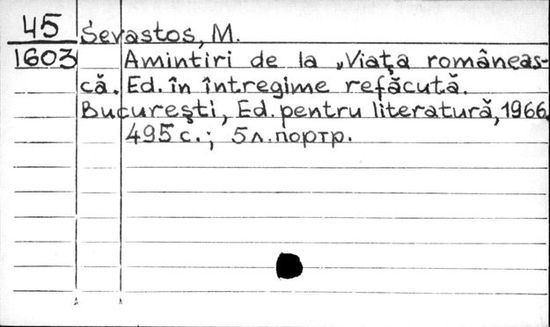 45
1603
Şevastos, M.
Amintiri de la „Viaţa româneas-
că. Ed. în întregime refăcută.
Bucureşti, Ed. pentru literatură, 1966.
495 с.; 5 л. портр.